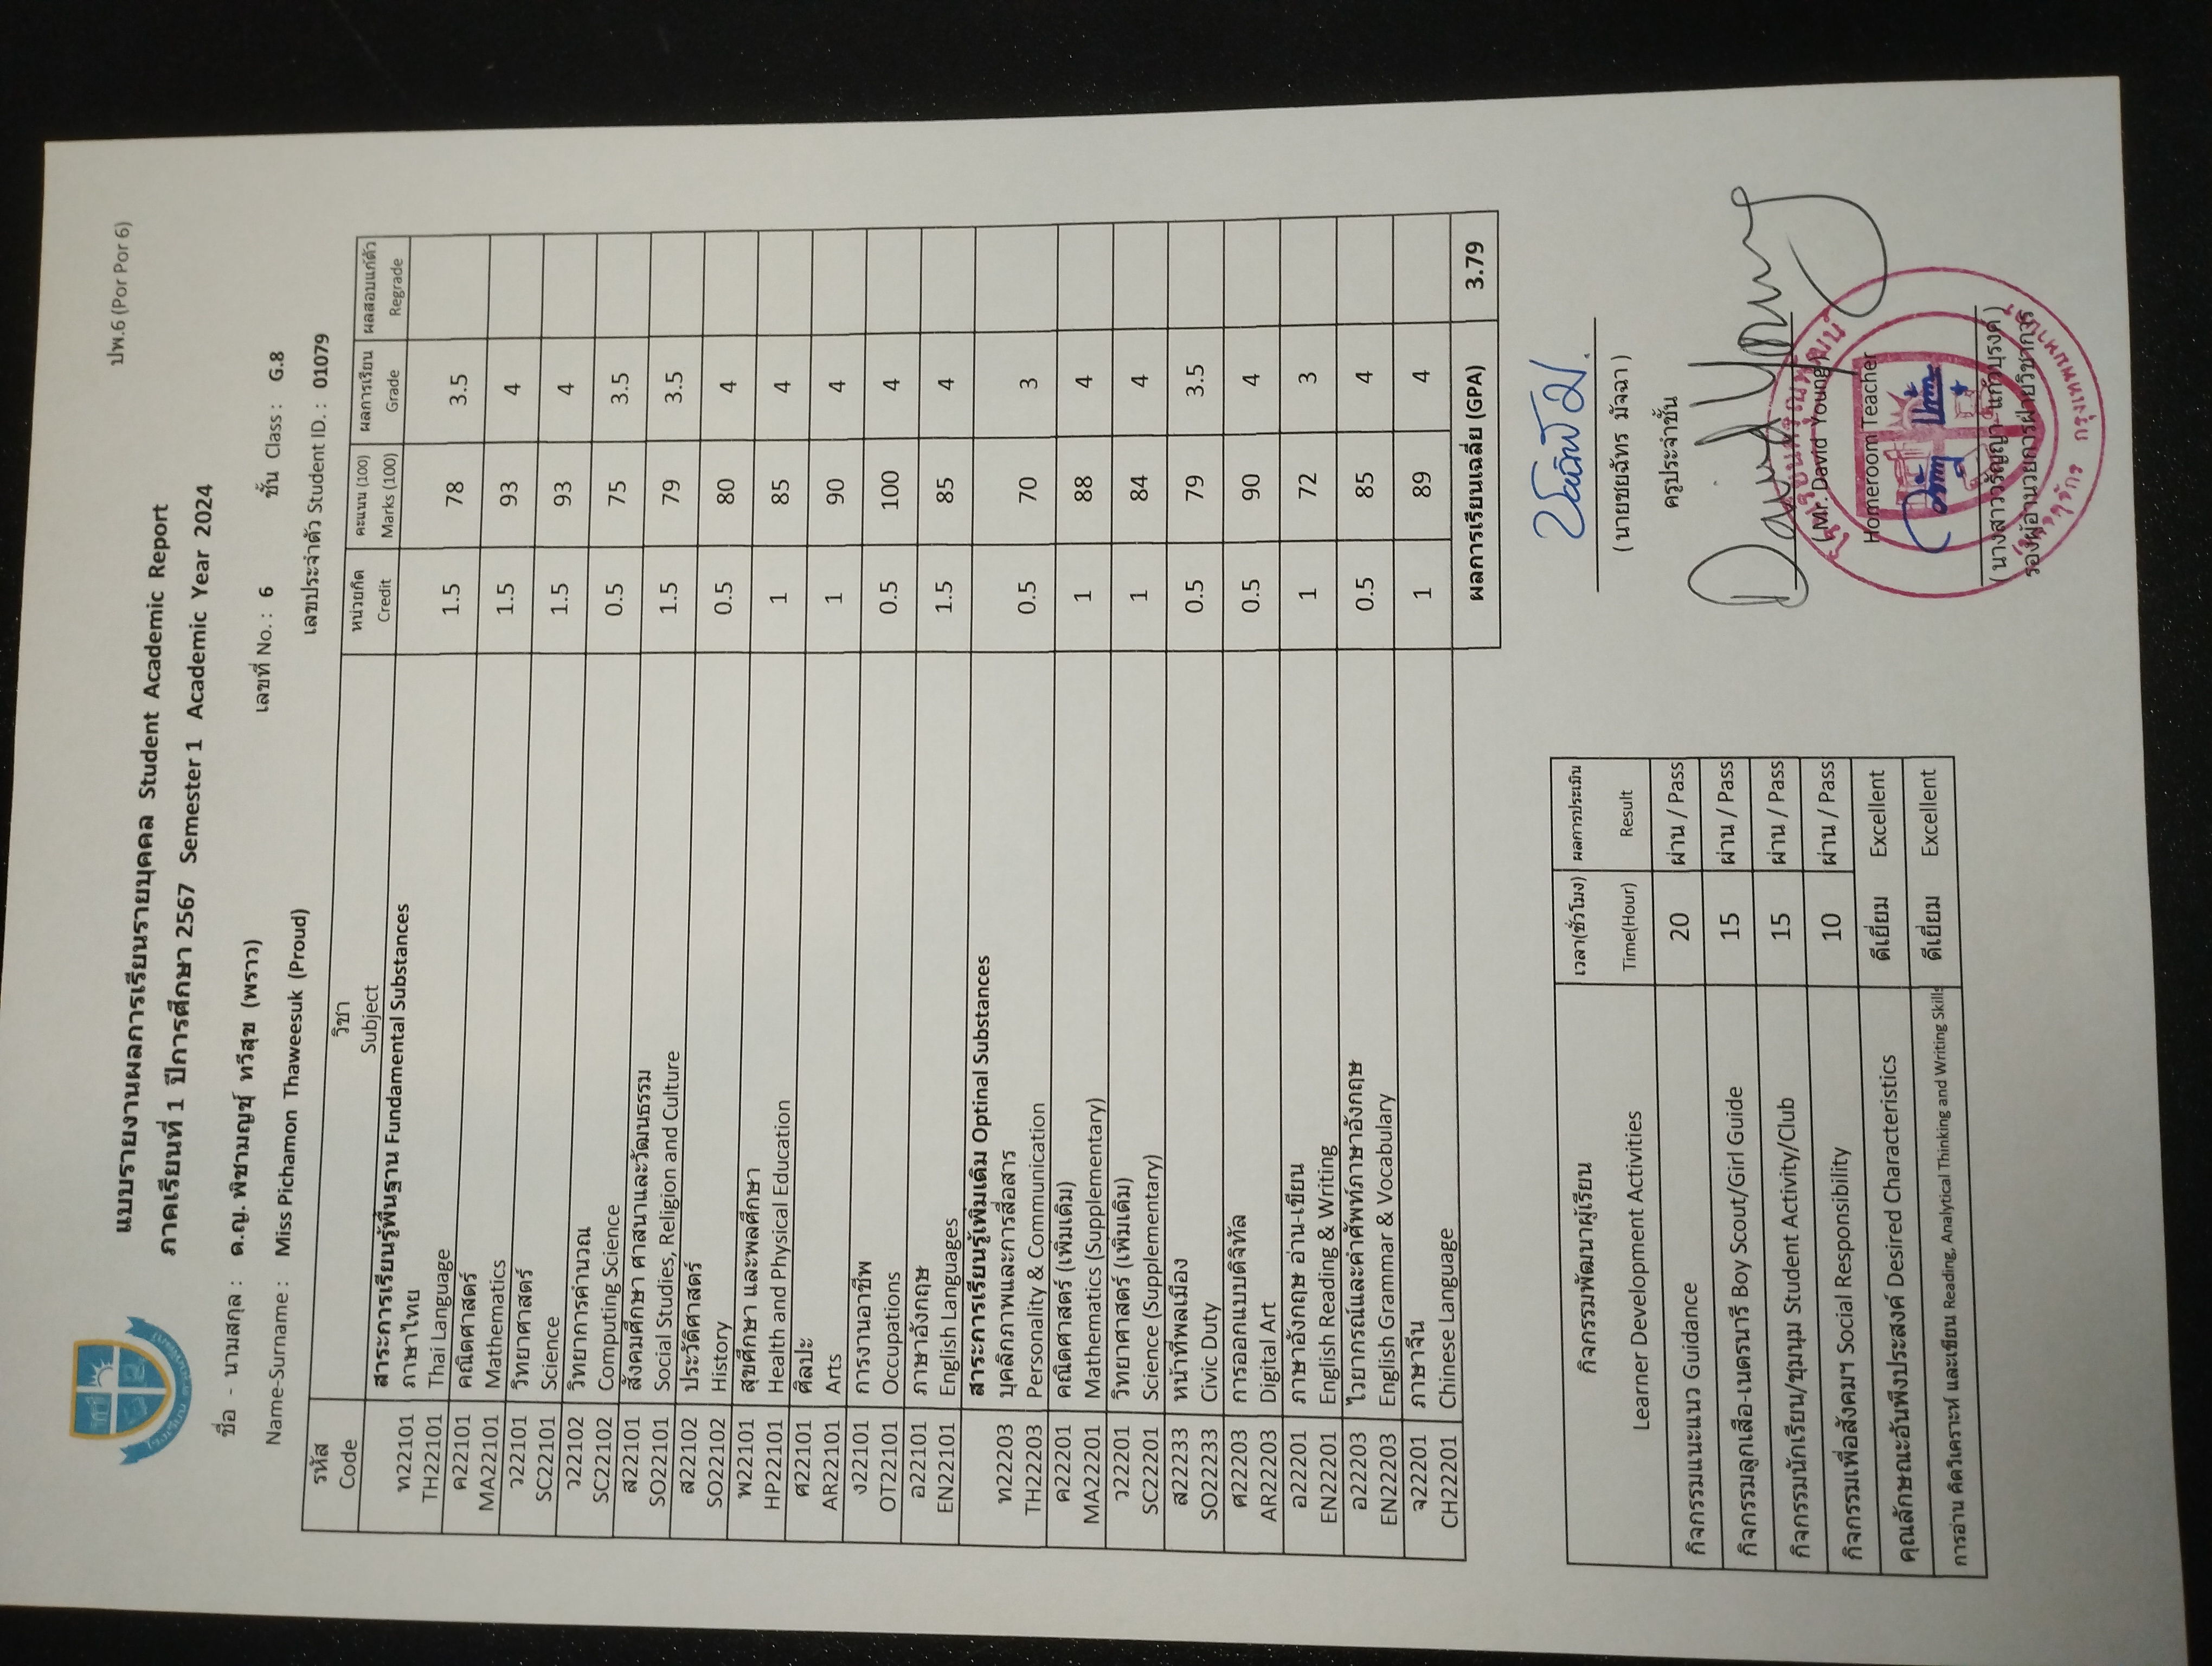 ปพ.6 (Por Por 6)
แบบรายงานผลการเรียนรายบุคคล Student Academic Report
ภาคเรียนที่ 1 ปีการศึกษา 2567 Semester 1 Academic Year 2024
ชื่อ - นามสกุล : ด.ญ. พิชามญชุ์ ทวีสุข (พราว) เลขที่ No. : 6 ชั้น Class : G.8
Name-Surname : Miss Pichamon Thaweesuk (Proud) เลขประจำตัว Student ID. : 01079
รหัส วิชา หน่วยกิต คะแนน (100) ผลการเรียน ผลสอบแก้ตัว
Code Subject Credit Marks (100) Grade Regrade
สาระการเรียนรู้พื้นฐาน Fundamental Substances
ท22101 ภาษาไทย
TH22101 Thai Language 1.5 78 3.5
ค22101 คณิตศาสตร์
MA22101 Mathematics 1.5 93 4
ว22101 วิทยาศาสตร์
SC22101 Science 1.5 93 4
ว22102 วิทยาการคำนวณ
SC22102 Computing Science 0.5 75 3.5
ส22101 สังคมศึกษา ศาสนาและวัฒนธรรม
SO22101 Social Studies, Religion and Culture 1.5 79 3.5
ส22102 ประวัติศาสตร์
SO22102 History 0.5 80 4
พ22101 สุขศึกษา และพลศึกษา
HP22101 Health and Physical Education 1 85 4
ศ22101 ศิลปะ
AR22101 Arts 1 90 4
ง22101 การงานอาชีพ
OT22101 Occupations 0.5 100 4
อ22101 ภาษาอังกฤษ
EN22101 English Languages 1.5 85 4
สาระการเรียนรู้เพิ่มเติม Optinal Substances
ท22203 บุคลิกภาพและการสื่อสาร
TH22203 Personality & Communication 0.5 70 3
ค22201 คณิตศาสตร์ (เพิ่มเติม)
MA22201 Mathematics (Supplementary) 1 88 4
ว22201 วิทยาศาสตร์ (เพิ่มเติม)
SC22201 Science (Supplementary) 1 84 4
ส22233 หน้าที่พลเมือง
SO22233 Civic Duty 0.5 79 3.5
ศ22203 การออกแบบดิจิทัล
AR22203 Digital Art 0.5 90 4
อ22201 ภาษาอังกฤษ อ่าน-เขียน
EN22201 English Reading & Writing 1 72 3
อ22203 ไวยากรณ์และคำศัพท์ภาษาอังกฤษ
EN22203 English Grammar & Vocabulary 0.5 85 4
จ22201 ภาษาจีน
CH22201 Chinese Language 1 89 4
ผลการเรียนเฉลี่ย (GPA) 3.79
กิจกรรมพัฒนาผู้เรียน เวลา(ชั่วโมง) ผลการประเมิน
Learner Development Activities Time(Hour) Result
กิจกรรมแนะแนว Guidance 20 ผ่าน / Pass
กิจกรรมลูกเสือ-เนตรนารี Boy Scout/Girl Guide 15 ผ่าน / Pass
กิจกรรมนักเรียน/ชุมนุม Student Activity/Club 15 ผ่าน / Pass
กิจกรรมเพื่อสังคมฯ Social Responsibility 10 ผ่าน / Pass
คุณลักษณะอันพึงประสงค์ Desired Characteristics ดีเยี่ยม Excellent
การอ่าน คิดวิเคราะห์ และเขียน Reading, Analytical Thinking and Writing Skills ดีเยี่ยม Excellent
( นายชยฉัทร มัจฉา )
ครูประจำชั้น
David Young
( Mr. David Young )
Homeroom Teacher
รองผู้อำนวยการฝ่ายวิชาการ
กรุงเทพมหานคร